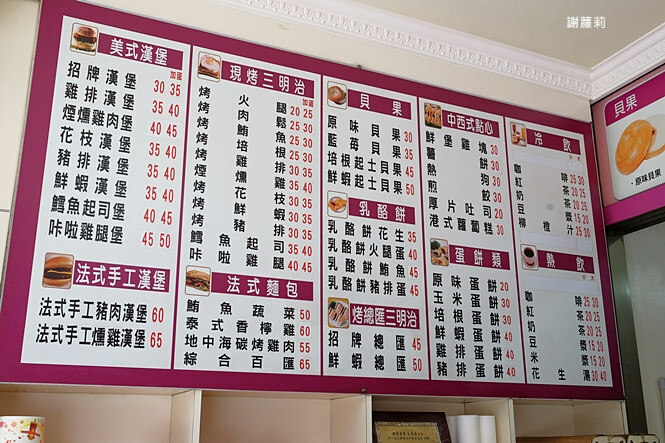 謝蘿莉
美式漢堡 加蛋
招牌漢堡 30 35
雞排漢堡 35 40
煙燻雞肉堡 40 45
花枝漢堡 35 40
豬排漢堡 35 40
鮮蝦漢堡 35 40
鱈魚起司堡 40 45
咔啦雞腿堡 45 50
法式手工漢堡
法式手工豬肉漢堡 60
法式手工燻雞漢堡 65
現烤三明治 加蛋
烤火腿 20 25
烤肉鬆 20 25
烤鮪魚
烤培根
烤雞排
烤煙燻雞
烤花枝
烤鮮蝦
烤豬排
烤鱈魚起司
咔啦雞腿 40 45
法式麵包
鮪魚蔬菜 50
泰式香檸雞 55
地中海碳烤雞肉 60
綜合百匯 65
貝果
原味貝果 30
藍莓貝果 35
培根起士貝果 45
鮮蝦起士貝果 50
乳酪餅
乳酪餅花生 35
乳酪餅火腿 40
乳酪餅鮪魚 45
乳酪餅豬排 45
烤總匯三明治
招牌總匯 45
鮮蝦總匯 50
中西式點心
鮮堡雞塊 30
薯餅
熱狗
煎餃
厚片吐司 20
港式蘿蔔糕 30
蛋餅類
原味蛋餅 20
玉米蛋餅 25
培根蛋餅 25
鮮蝦蛋餅
雞排蛋餅
豬排蛋餅
冷飲 小 大
咖啡 25 30
紅茶 15 20
奶茶 15 20
豆漿 15 20
柳橙汁 25 30
熱飲 小 大
咖啡 25 30
紅茶 15 20
奶茶 15 20
豆漿 15 20
米漿 15 20
花生湯 30 40
貝果
·原味貝果